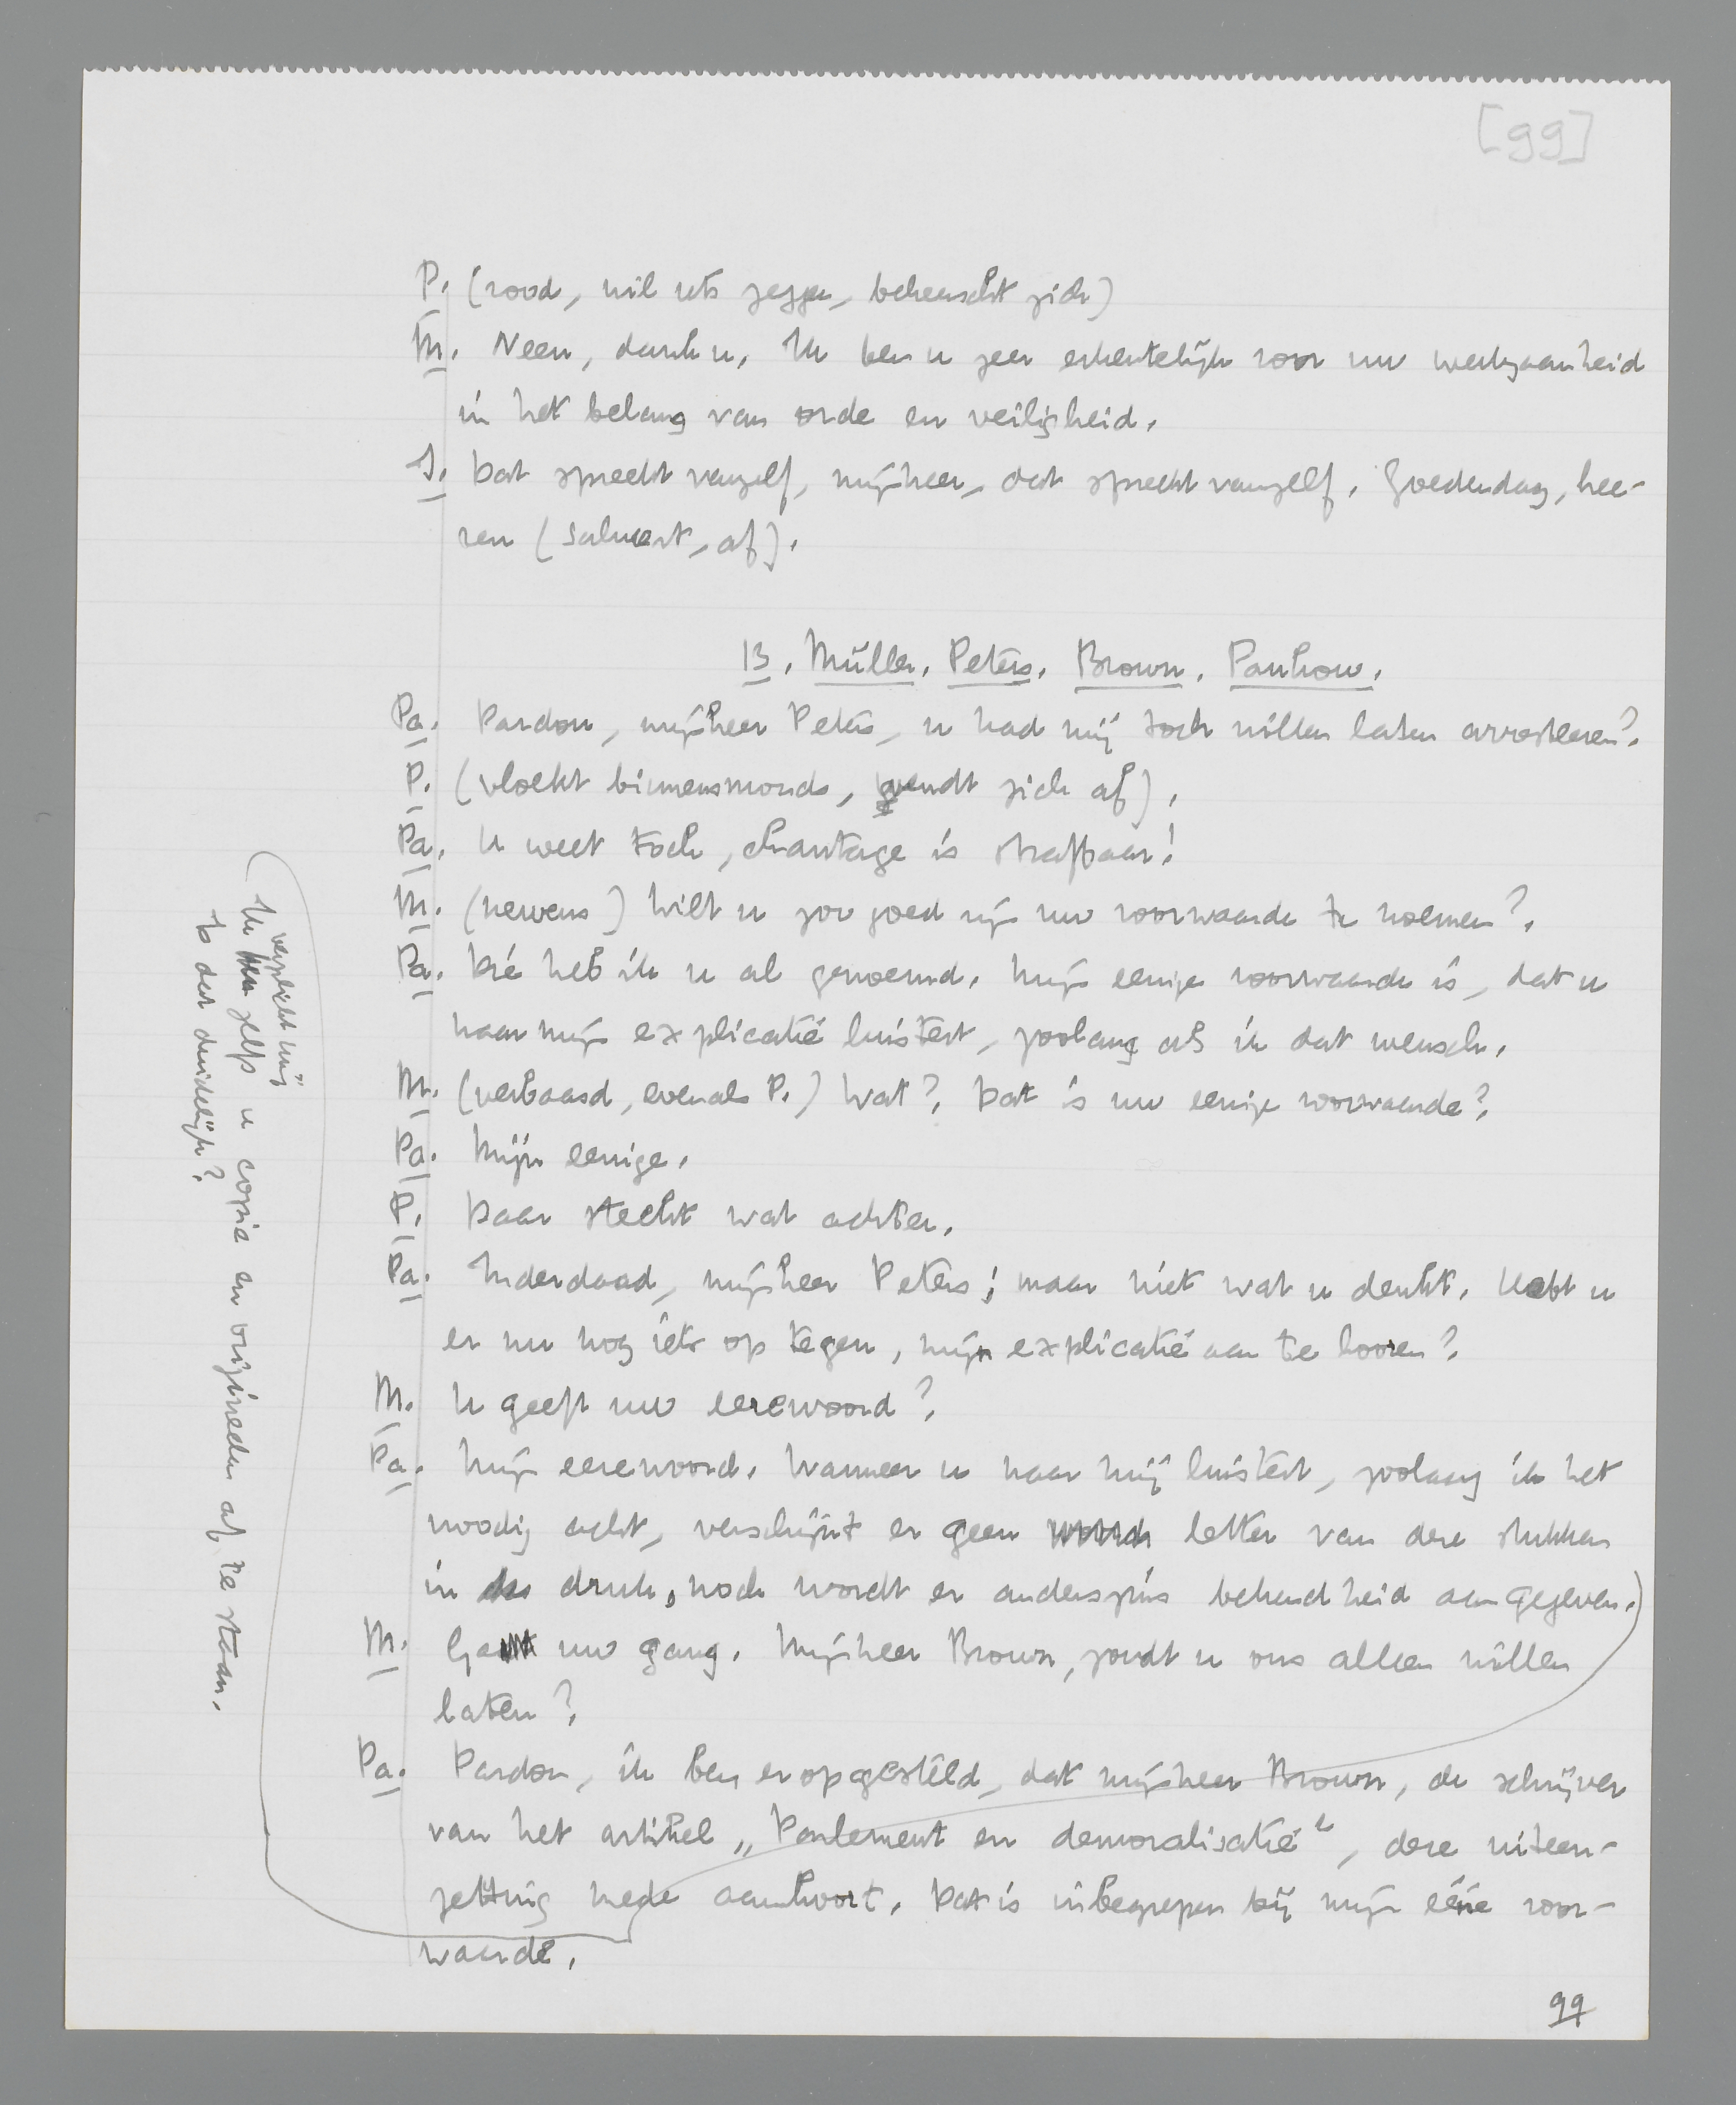 [99]
P. (rood, wil iets zeggen, beheerscht zich)
M. Neen, dank u. Ik ben u zeer erkentelijk voor uw werkzaamheid
in het belang van orde en veiligheid.
I. Dat spreekt vanzelf, mijnheer, dat spreekt vanzelf. Goedendag, hee-
ren (salueert, af).
13. Müller. Peters. Brown. Pankow.
Pa. Pardon, mijnheer Peters, u had mij toch willen laten arresteeren?
P. (vloekt binnensmonds, wendt zich af).
Pa. U weet toch, chantage is strafbaar!
M. (nerveus) Wilt u zoo goed zijn uw voorwaarde te noemen?
Pa. Die heb ik u al genoemd. Mijn eenige voorwaarde is, dat u
naar mijn explicatie luistert, zoolang als ik dat wensch.
M. (verbaasd, evenals P.) Wat? Dat is uw eenige voorwaarde?
Pa. Mijn eenige.
P. Daar steekt wat achter.
Pa. Inderdaad, mijnheer Peters; maar niet wat u denkt. Hebt u
er nu nog iets op tegen, mijn explicatie aan te hooren?
M. U geeft uw eerewoord?
Pa. Mijn eerewoord. Wanneer u naar mij luistert, zoolang ik het
noodig acht, verschijnt er geen letter van deze stukken
in druk, noch wordt er anderszins bekendheid aan gegeven.)
M. Ga uw gang. Mijnheer Brown, zoudt u ons alleen willen
laten?
Pa. Pardon, ik ben er op gesteld, dat mijnheer Brown, de schrijver
van het artikel „Parlement en demoralisatie", deze uiteen-
zetting mede aanhoort. Dat is inbegrepen bij mijn ééne voor-
waarde.
verplicht mij
Ik zelfs u copie en origineelen af te staan.
Is dat duidelijk?
99